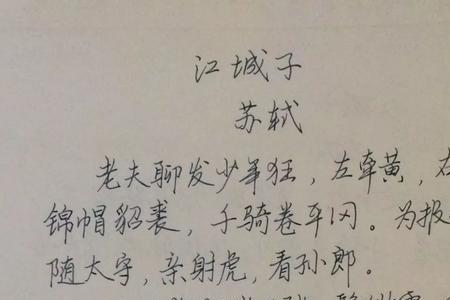 江城子
苏轼
老夫聊发少年狂，左牵黄，
锦帽貂裘，千骑卷平冈。为报
随太守，亲射虎，看孙郎。